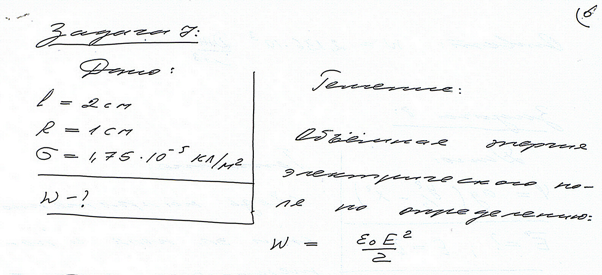 6
Задача 7:
Дано:
l = 2 см
R = 1 см
σ = 1,75 · 10⁻⁵ Кл/м²
W - ?
Решение:
Объёмная энергия
электрического по-
ля по определению:
W = ε₀E²/2